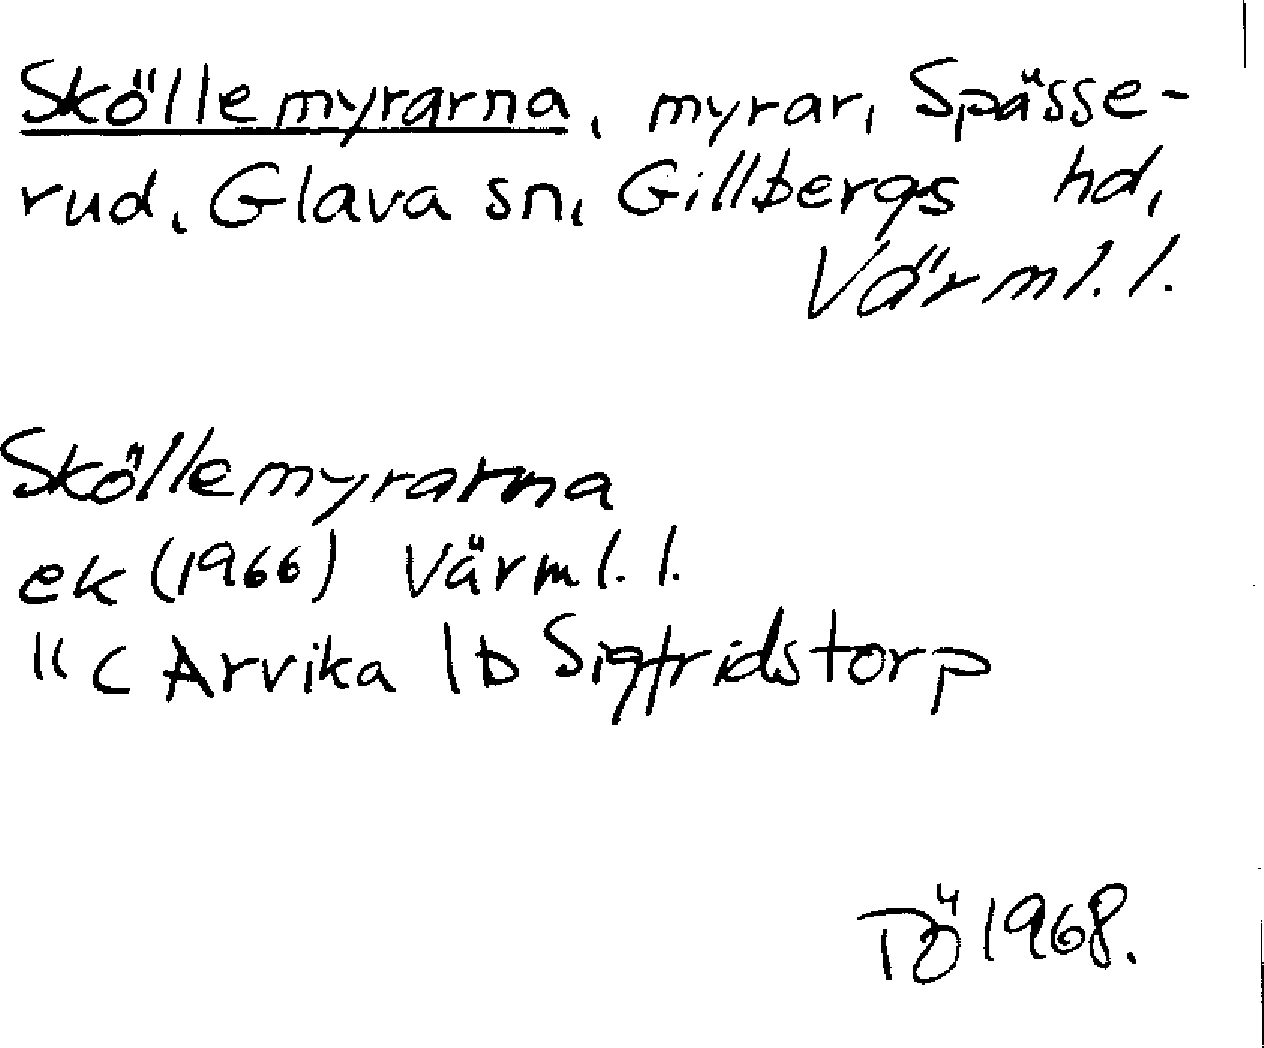 Sköllemyrarna, myrar, Spässe-
rud, Glava sn, Gillbergs hd,
Värml. l.
Sköllemyrarna
ek (1966) Värml. l.
11 C Arvika 1 b Sigfridstorp
PÖ 1968.